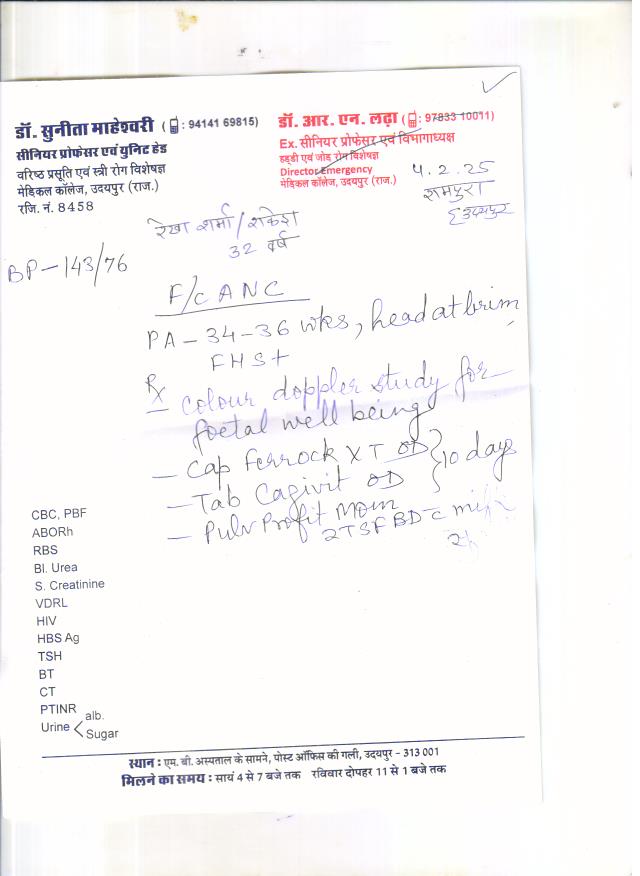 डॉ. सुनीता माहेश्वरी ( : 94141 69815)
सीनियर प्रोफेसर एवं युनिट हेड
वरिष्ठ प्रसूति एवं स्त्री रोग विशेषज्ञ
मेडिकल कॉलेज, उदयपुर (राज.)
रजि. नं. 8458
डॉ. आर. एन. लढ़ा ( : 97833 10011)
Ex. सीनियर प्रोफेसर एवं विभागाध्यक्ष
हड्डी एवं जोड़ रोग विशेषज्ञ
Director Emergency
मेडिकल कॉलेज, उदयपुर (राज.)
4.2.25
रामपुरा
उदयपुर
रेखा शर्मा / राकेश
32 वर्ष
BP - 143/76
F/c ANC
PA - 34-36 wks, head at brim
FHS+
Rx
- Colour doppler study for
foetal well being
- Cap Ferrock XT OD } 10 days
- Tab Cagivit OD
- Pulv Profit Mom
2TSF BD c
CBC, PBF
ABORh
RBS
Bl. Urea
S. Creatinine
VDRL
HIV
HBS Ag
TSH
BT
CT
PTINR
Urine < alb.
Sugar
स्थान : एम. बी. अस्पताल के सामने, पोस्ट ऑफिस की गली, उदयपुर - 313 001
मिलने का समय : सायं 4 से 7 बजे तक रविवार दोपहर 11 से 1 बजे तक